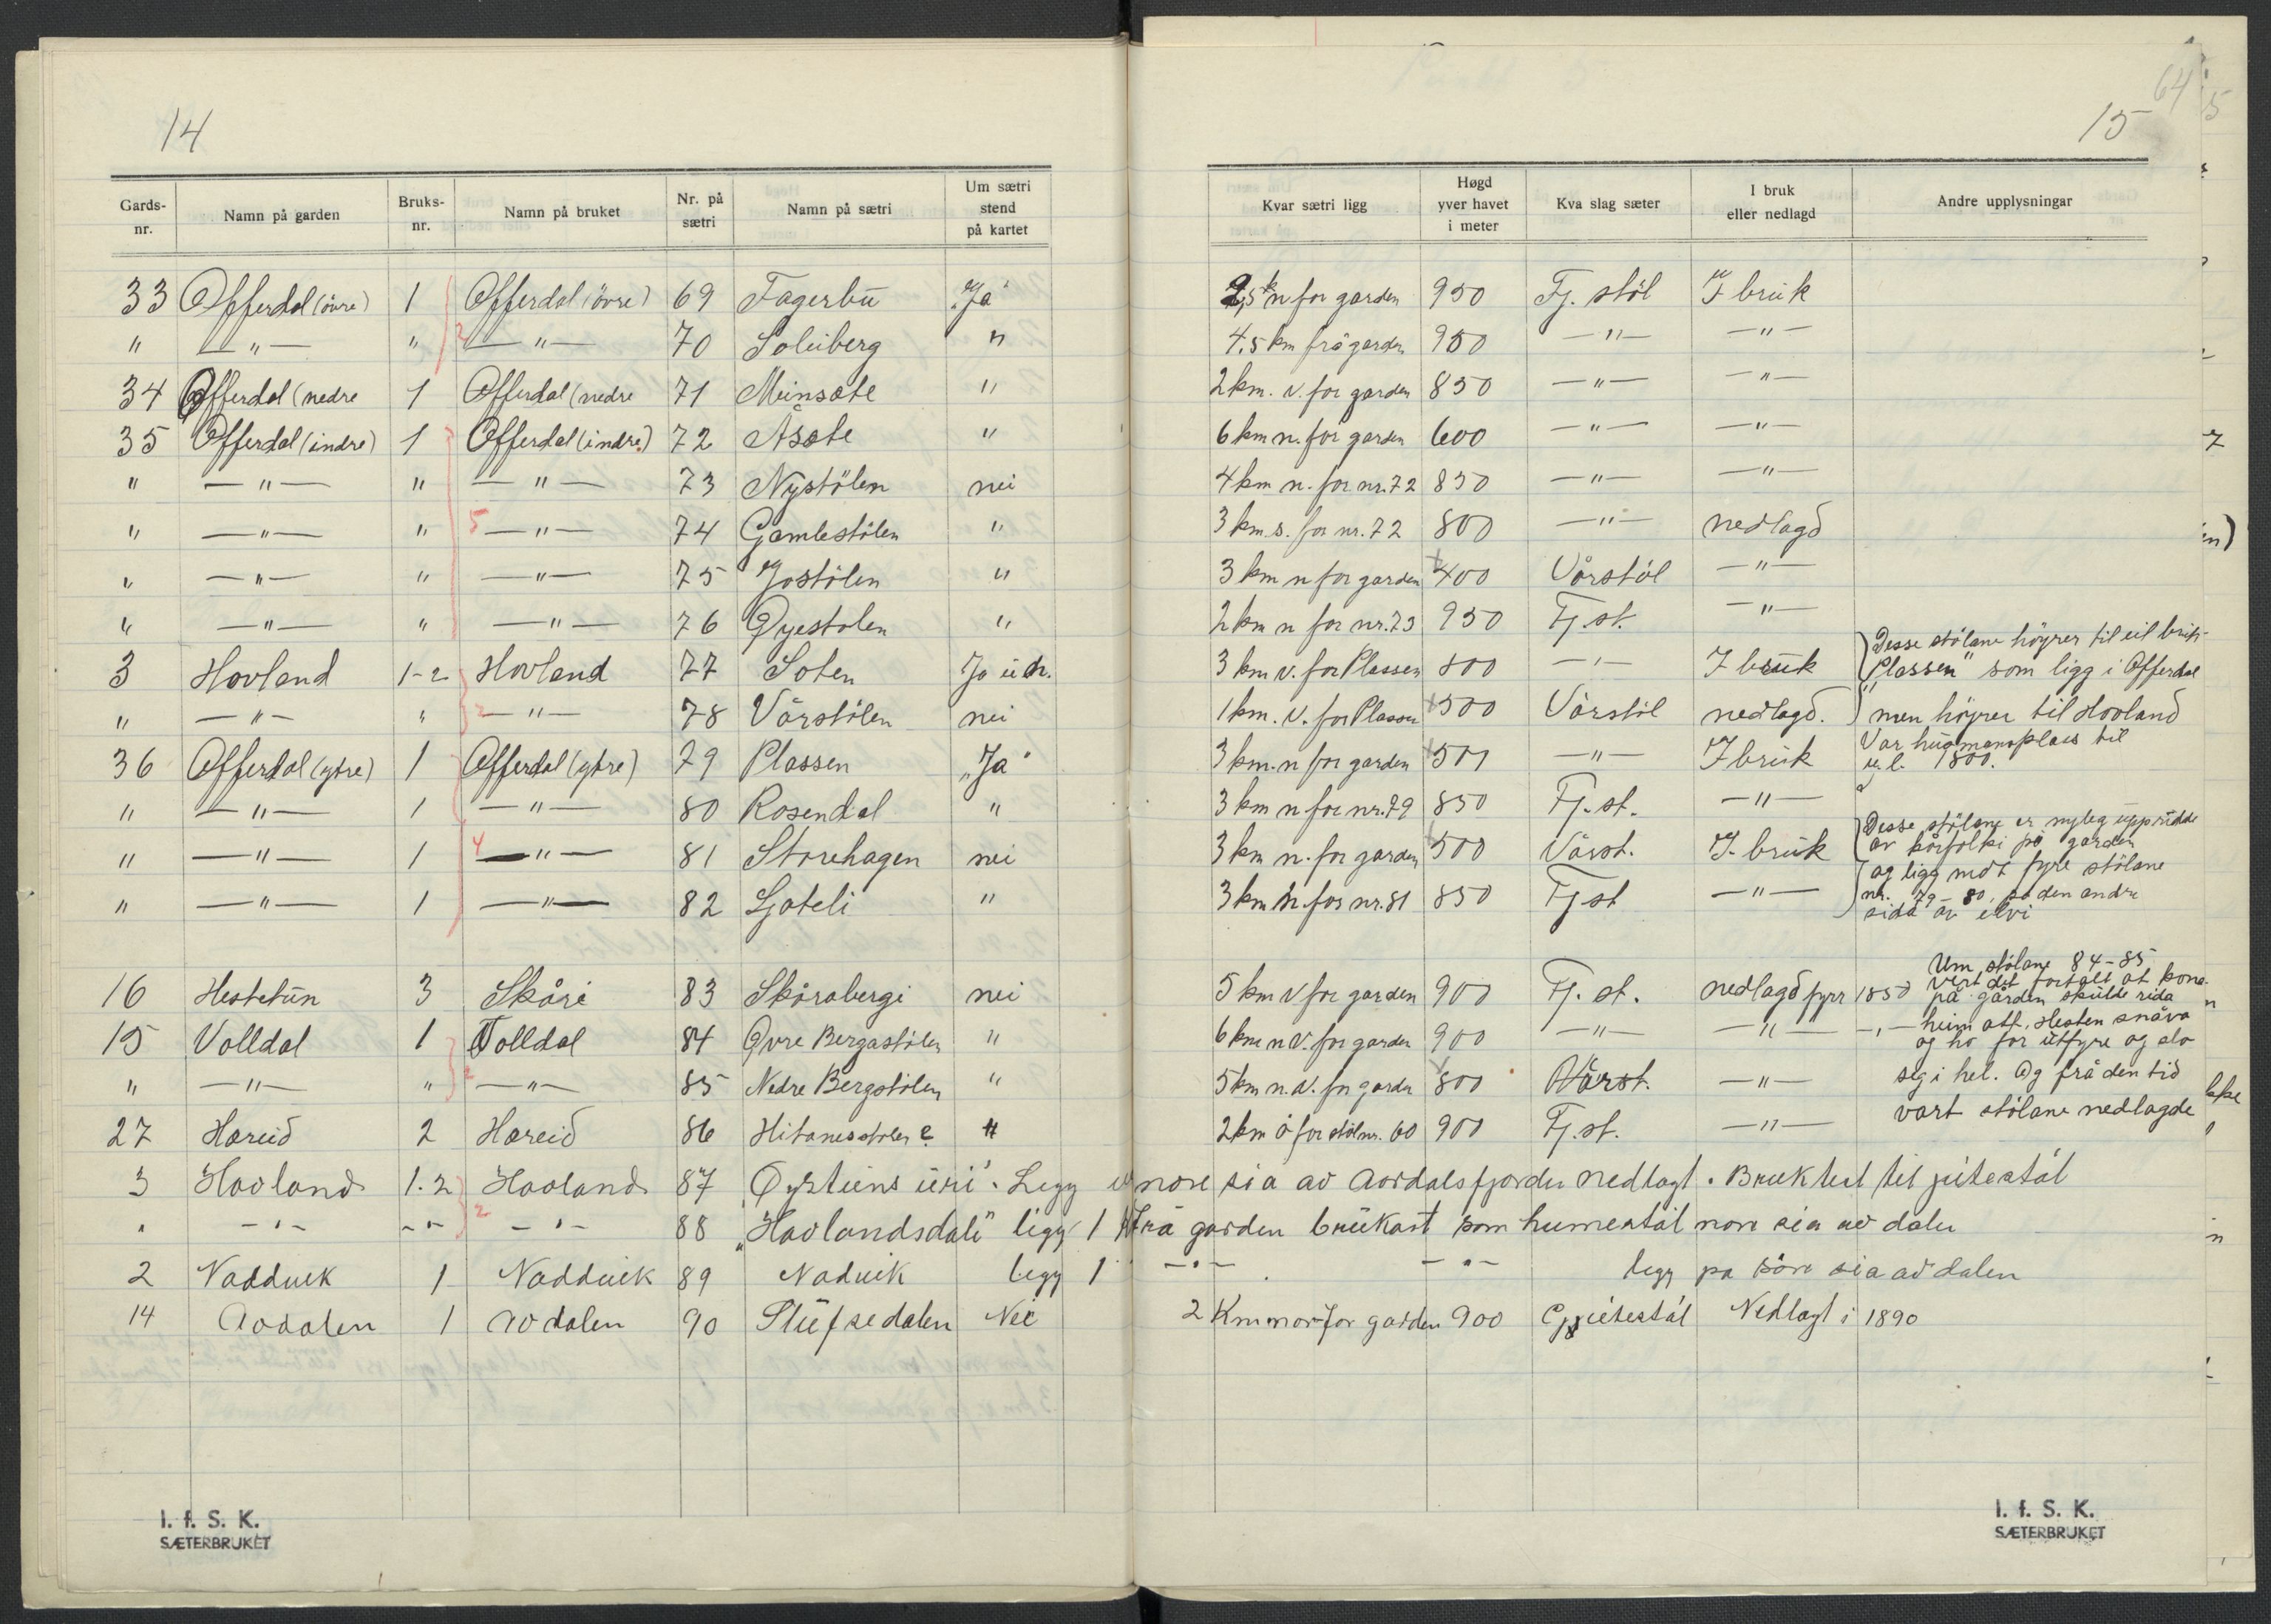 14
Gards-nr. Namn på garden Bruks-nr. Namn på bruket Nr. på sætri Namn på sætri Um sætri stend på kartet
33 Offerdal (övre) 1 Offerdal (övre) 69 Fagerbu "Ja"
" — " — " 2 — " — 70 Soleiberg "
34 Offerdal (nedre 1 Offerdal (nedre 71 Meinsate "
35 Offerdal (indre) 1 Offerdal (indre) 72 Åsate "
" — " — " — " — 73 Nystölen nei
" — " — " 5 — " — 74 Gamlestölen "
" — " — " — " — 75 Jostölen "
" — " — " — " — 76 Öyestolen "
3 Hovland 1-2 Hovland 77 Soten Ja
" — " — " 2 — " — 78 Vårstölen nei
36 Offerdal (ytre) 1 Offerdal (ytre) 79 Plassen "Ja"
" — " — 1 — " — 80 Rosendal "
" — " — 1 4 — " — 81 Storehagen nei
" — " — 1 — " — 82 Ljoteli "
16 Hestetun 3 Skåri 83 Skårabergi nei
15 Volldal 1 Volldal 84 Övre Bergastölen "
" — " — " 2 — " — 85 Nedre Bergstölen "
27 Hareid 2 Hareid 86 Hitanesstolen "
3 Hovland 1.2 Hovland 87 Öysteins uri". Legg
" — " — — " — 2 — " — 88 "Hovlandsdali" ligg 1
2 Nadduik 1 Nadduik 89 Naduik legg 1
14 Avdalen 1 Avdalen 90 Stufsedalen Nei
I. f. S. K.
SÆTERBRUKET
64
15
Kvar sætri ligg Høgd yver havet i meter Kva slag sæter I bruk eller nedlagd Andre upplysningar
2,5 k n for garden 950 Fj. stöl I bruk
4.5 km frå garden 950 — " — — " —
2 km. v. for garden 850 — " — — " —
6 km n. for garden 600 — " — — " —
4 km n. for nr. 72 850 — " — — " —
3 km. s. for nr. 72 800 — " — nedlagd
3 km n for garden 400 Vårstöl — " —
2 km n for nr. 73 950 Fj. st. — " —
3 km v. for Plassen 800 — " — I bruk
Desse stölane höyrer til eit bruk
"Plassen" som ligg i Offerdal
men höyrer til Hovland
1 km. v. for Plassen 500 Vårstöl nedlagd.
3 km. n for garden 500 — " — I bruk
Var husmansplass til
1800.
3 km n. for nr. 79 850 Fj. st. — " —
3 km n. for garden 500 Vårst. I. bruk
Desse stölane er nyleg upprudde
av kårfolki på garden
og ligg mot fyre stölane
nr. 79 - 80, på den andre
sida av elvi
3 km n. for nr. 81 850 Fj. st — " —
5 km v for garden 900 Fj. st. nedlagd fyrr 1850
6 km n v. for garden 900 — " — — " — — " —
5 km n. v. for garden 800 Vårst. — " —
2 km ö for stöl nr. 60 900 Fj. st. — " —
Um stölane 84-85
vert det fortalt at kona
på garden skulde rida
heim att. Hesten snåva
og ho for utfyre og slo
seg i hel. Og frå den tid
vart stölane nedlagde
nore sia av Aordalsfjorden Nedlagt. Bruktest til jeitestål
frå garden brukast som humestål nore sia av dalen
— " — — " — legg pa söre sia av dalen
2 Km nor for garden 900 Gjeitestål Nedlagt i 1890
I. f. S. K.
SÆTERBRUKET